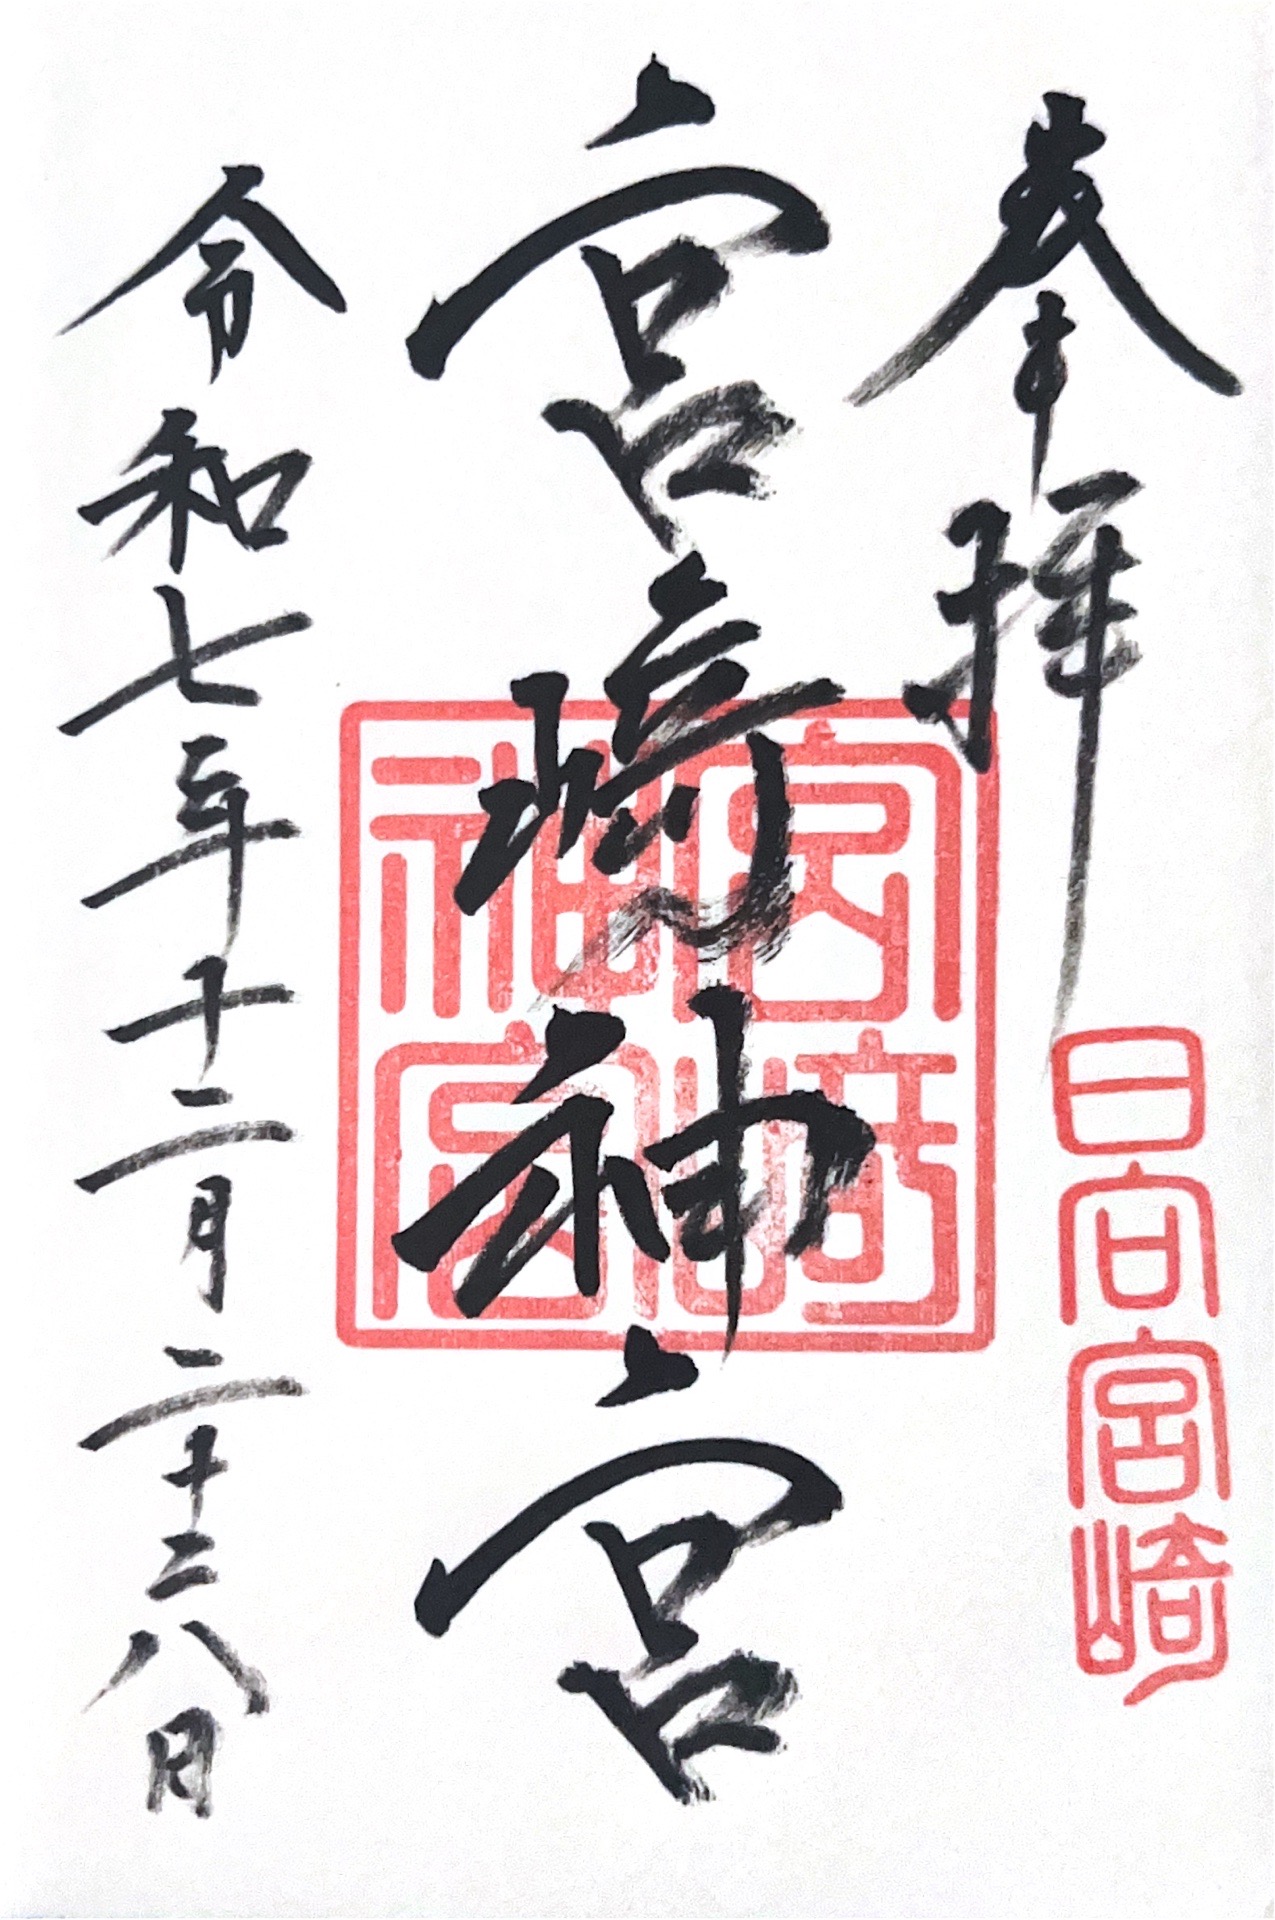 奉拝
日向宮崎
宮﨑神宮
宮﨑
神宮
令和七年十二月二十二八日